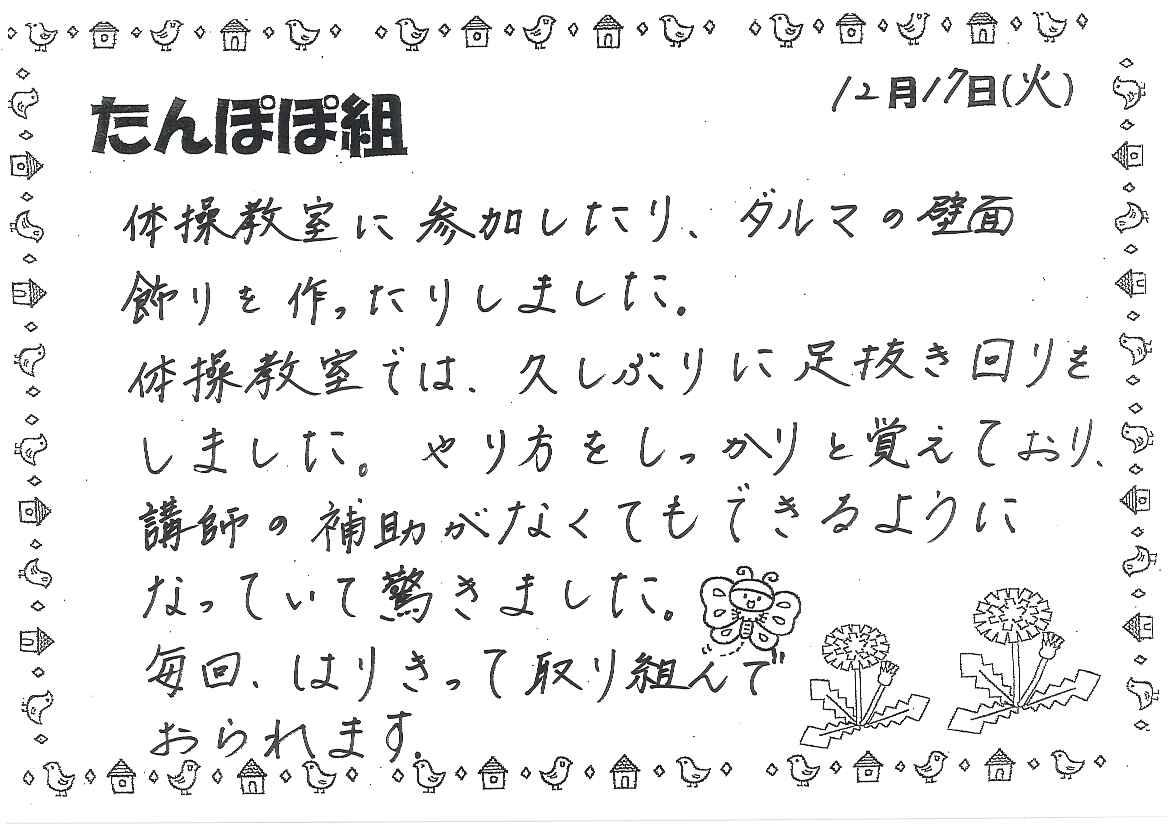 12月17日(火)
たんぽぽ組
体操教室に参加したり、ダルマの壁面
飾りを作ったりしました。
体操教室では、久しぶりに足抜き回りを
しました。やり方をしっかりと覚えており、
講師の補助がなくてもできるように
なっていて驚きました。
毎回、はりきって取り組んで
おられます。